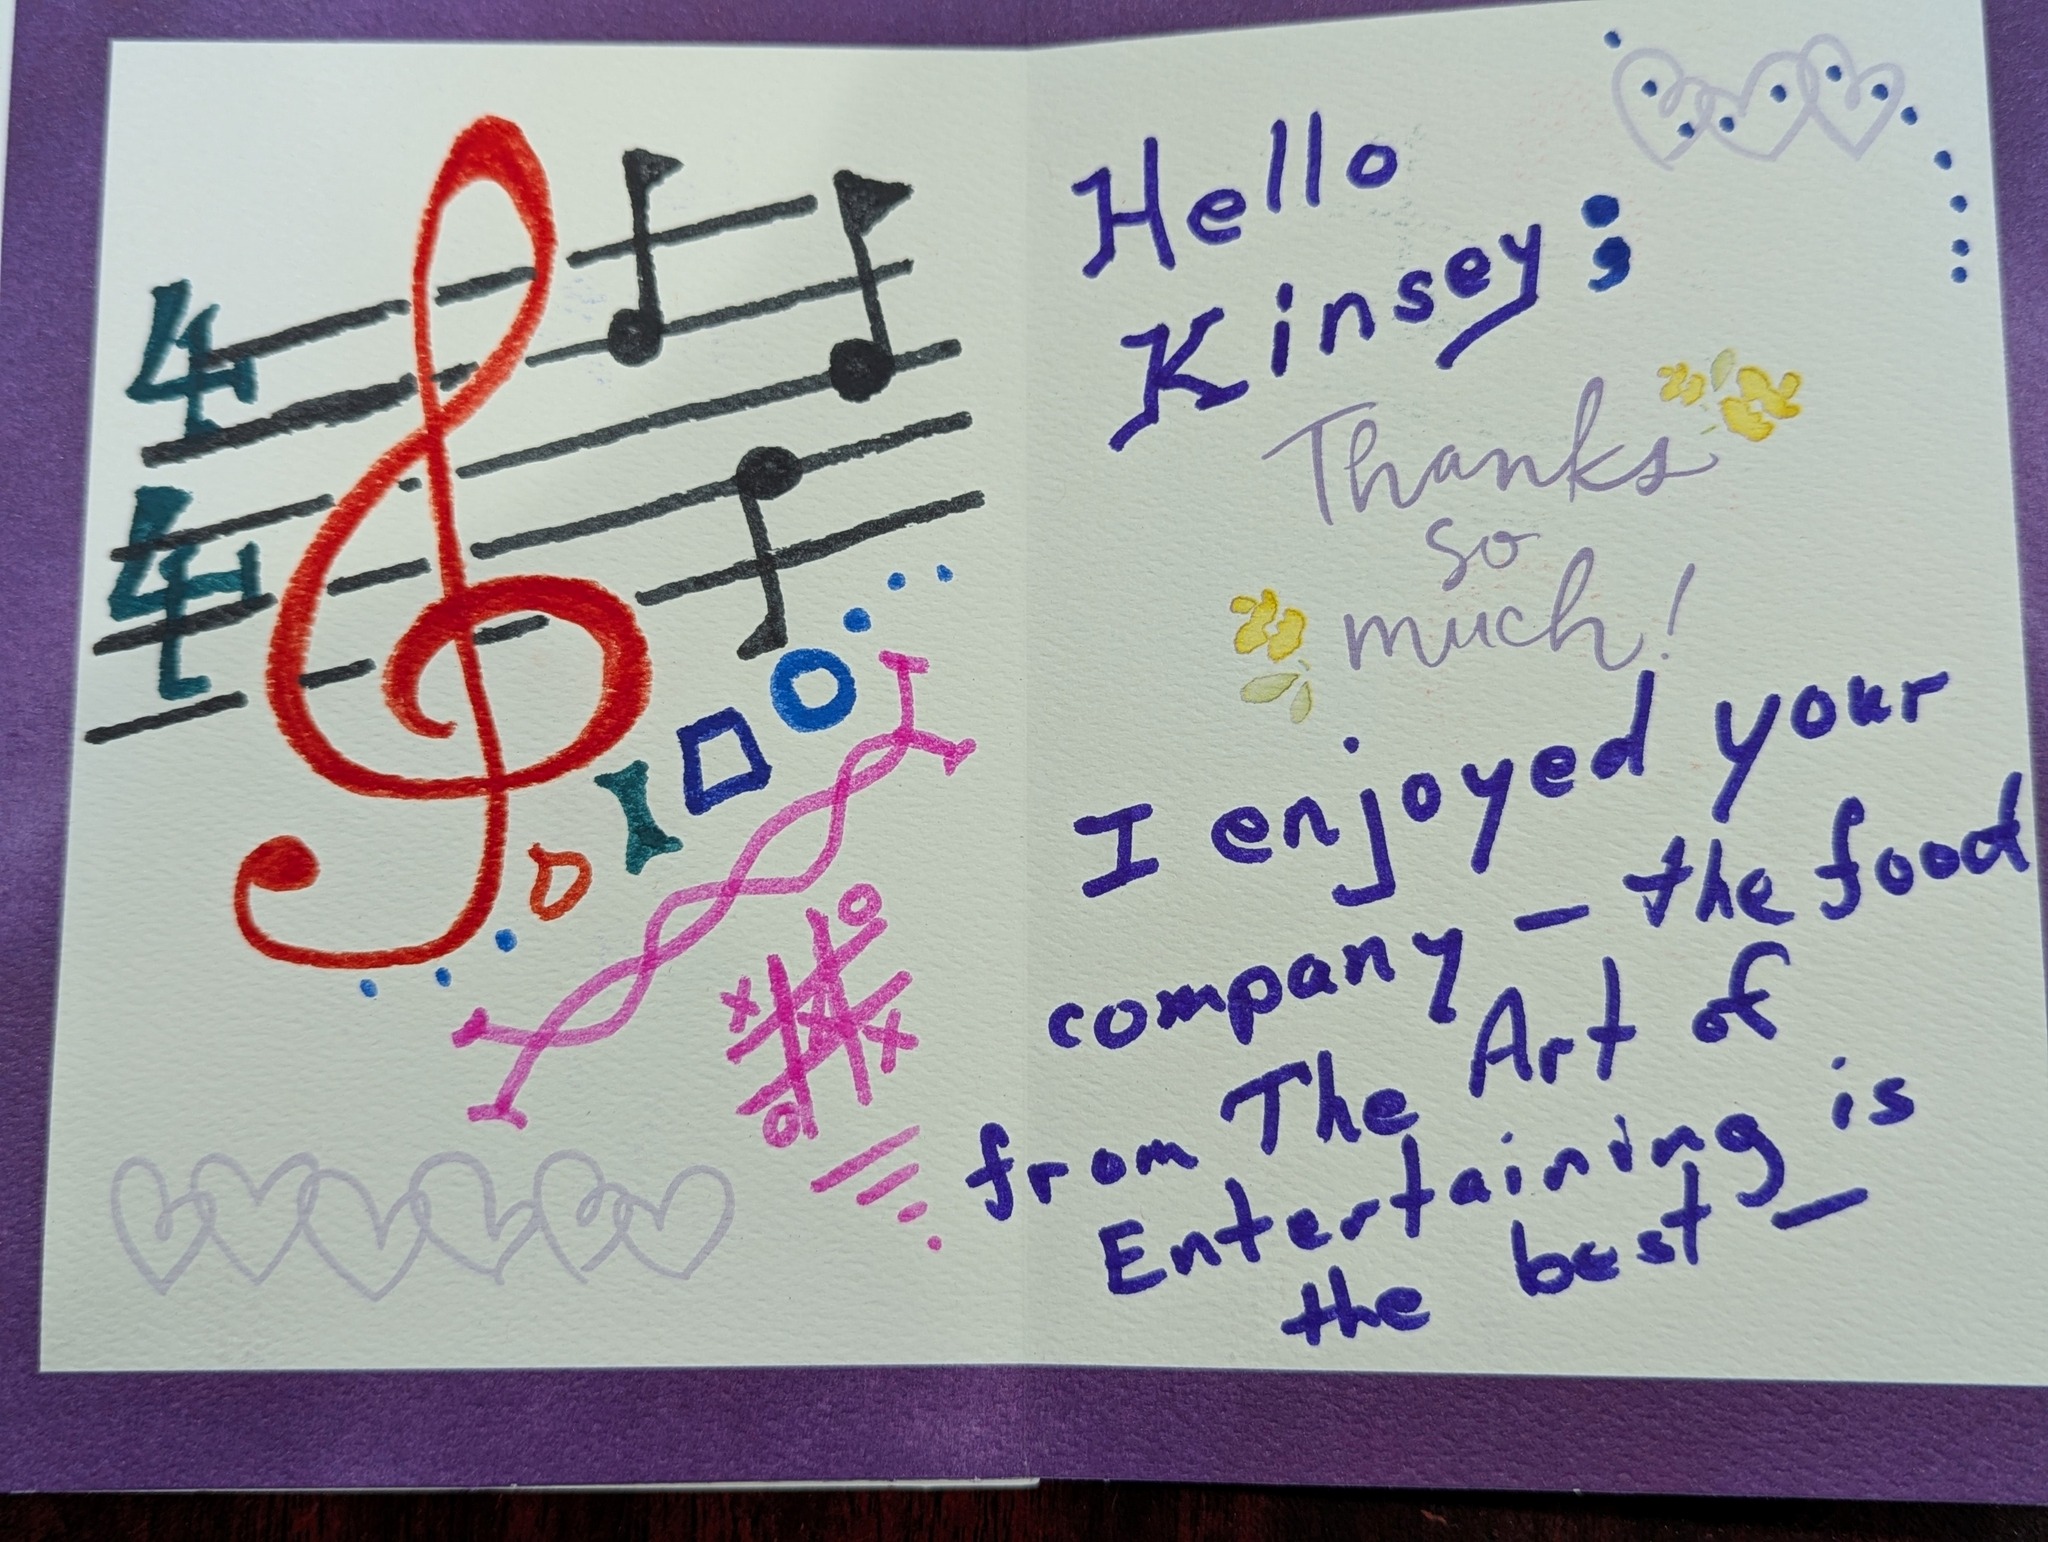 4
4
Hello
Kinsey;
Thanks
so
much!
I enjoyed your
company – the food
from The Art of
Entertaining is
the best –